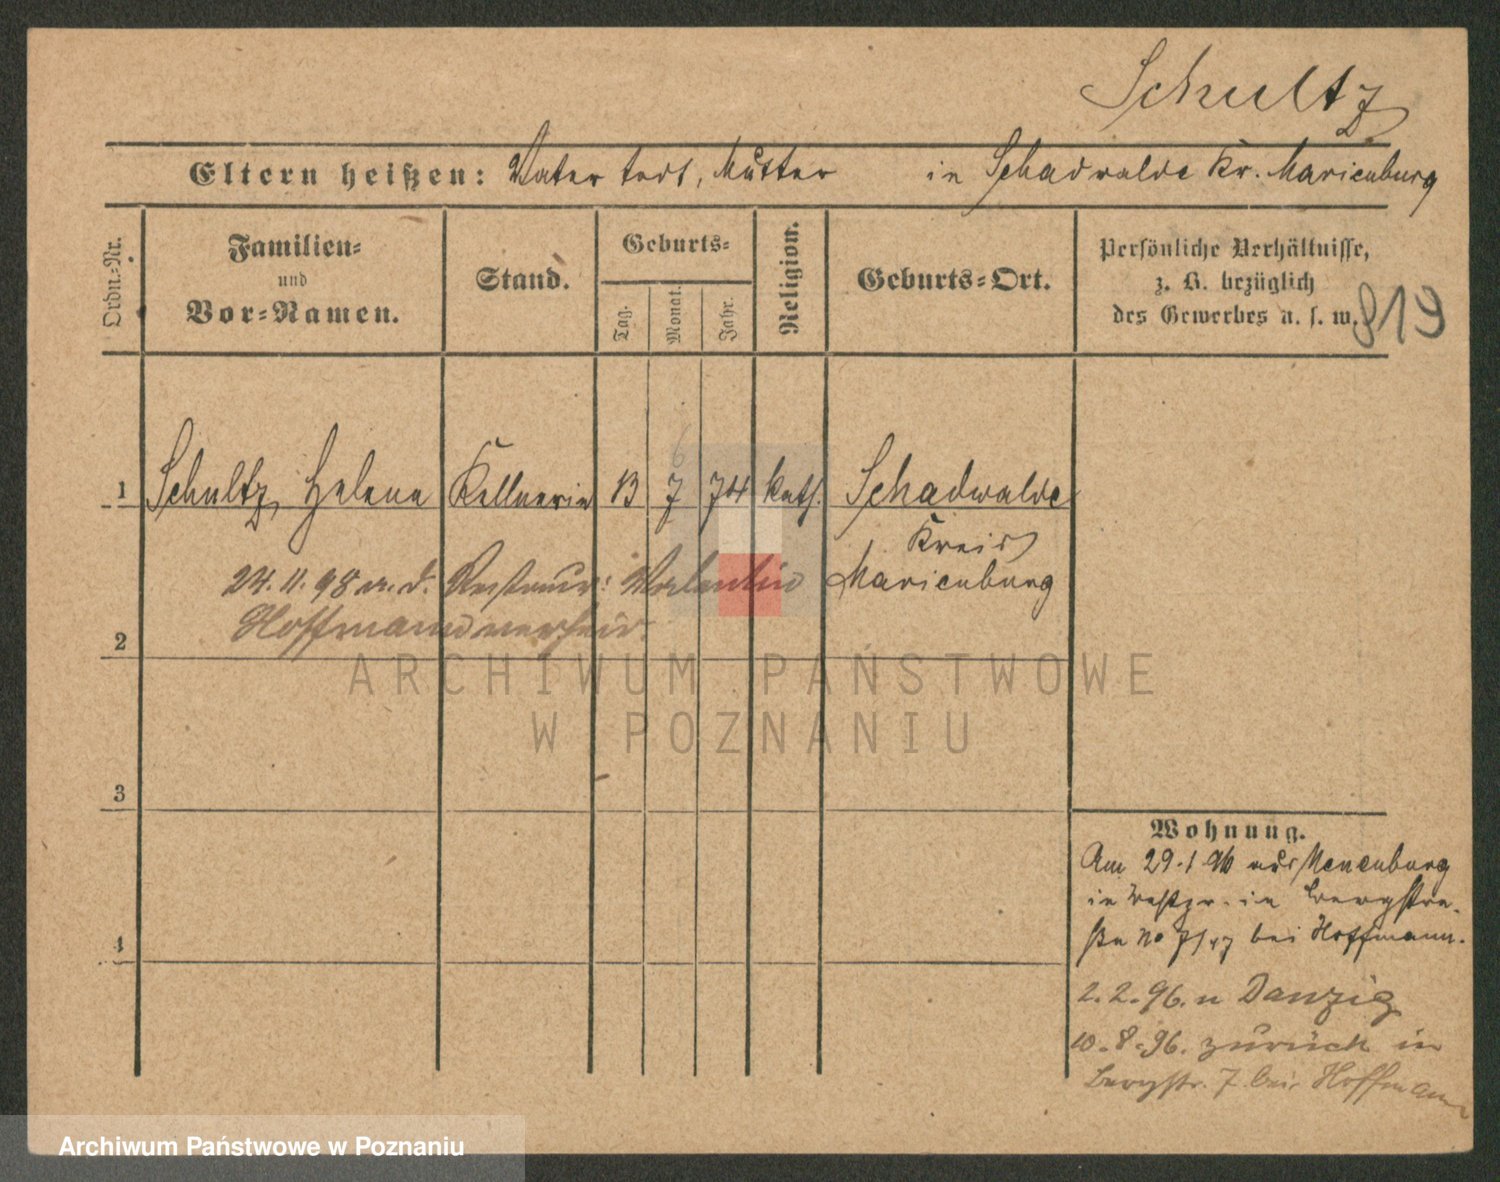 Schultz
Eltern heißen: Vater todt, Mutter in Schadwalde Kr. Marienburg
Ordn.-Nr.
Familien-
und
Vor-Namen.
Stand.
Geburts-
Tag.
Monat.
Jahr.
Religion.
Geburts-Ort.
Persönliche Verhältnisse,
z. B. bezüglich
des Gewerbes u. s. w.
819
6
1 Schultz, Helene Kellnerin 13 7 74 kath. Schadwalde
Kreis
Marienburg
24. 11. 98 m. d. Restaur: Valentin
Hoffmann verheir.
2
3
4
Wohnung.
Am 29. 1 96 aus
in Westpr. in Bergstra-
ße No 7 bei Hoffmann.
2. 2. 96. n Danzig
10. 8. 96. zurück in
Bergstr. 7 bei Hoffmann
ARCHIWUM PAŃSTWOWE
W POZNANIU
Archiwum Państwowe w Poznaniu